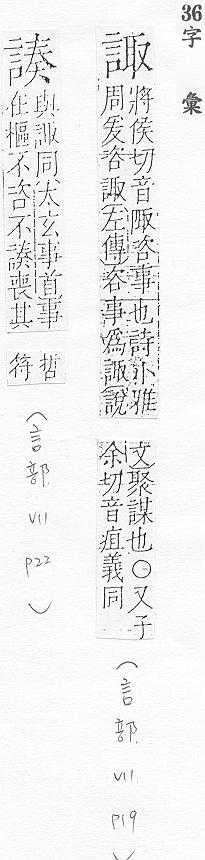 36字 彙
諏
將侯切音陬咨事也詩小雅
周爰咨諏左傳咨事爲諏說
文聚謀也○又子
余切音疽義同
(言部 VII P19)
與諏同太玄事首事 哲
在樞不咨不 喪其 符
(言部 VII P22)